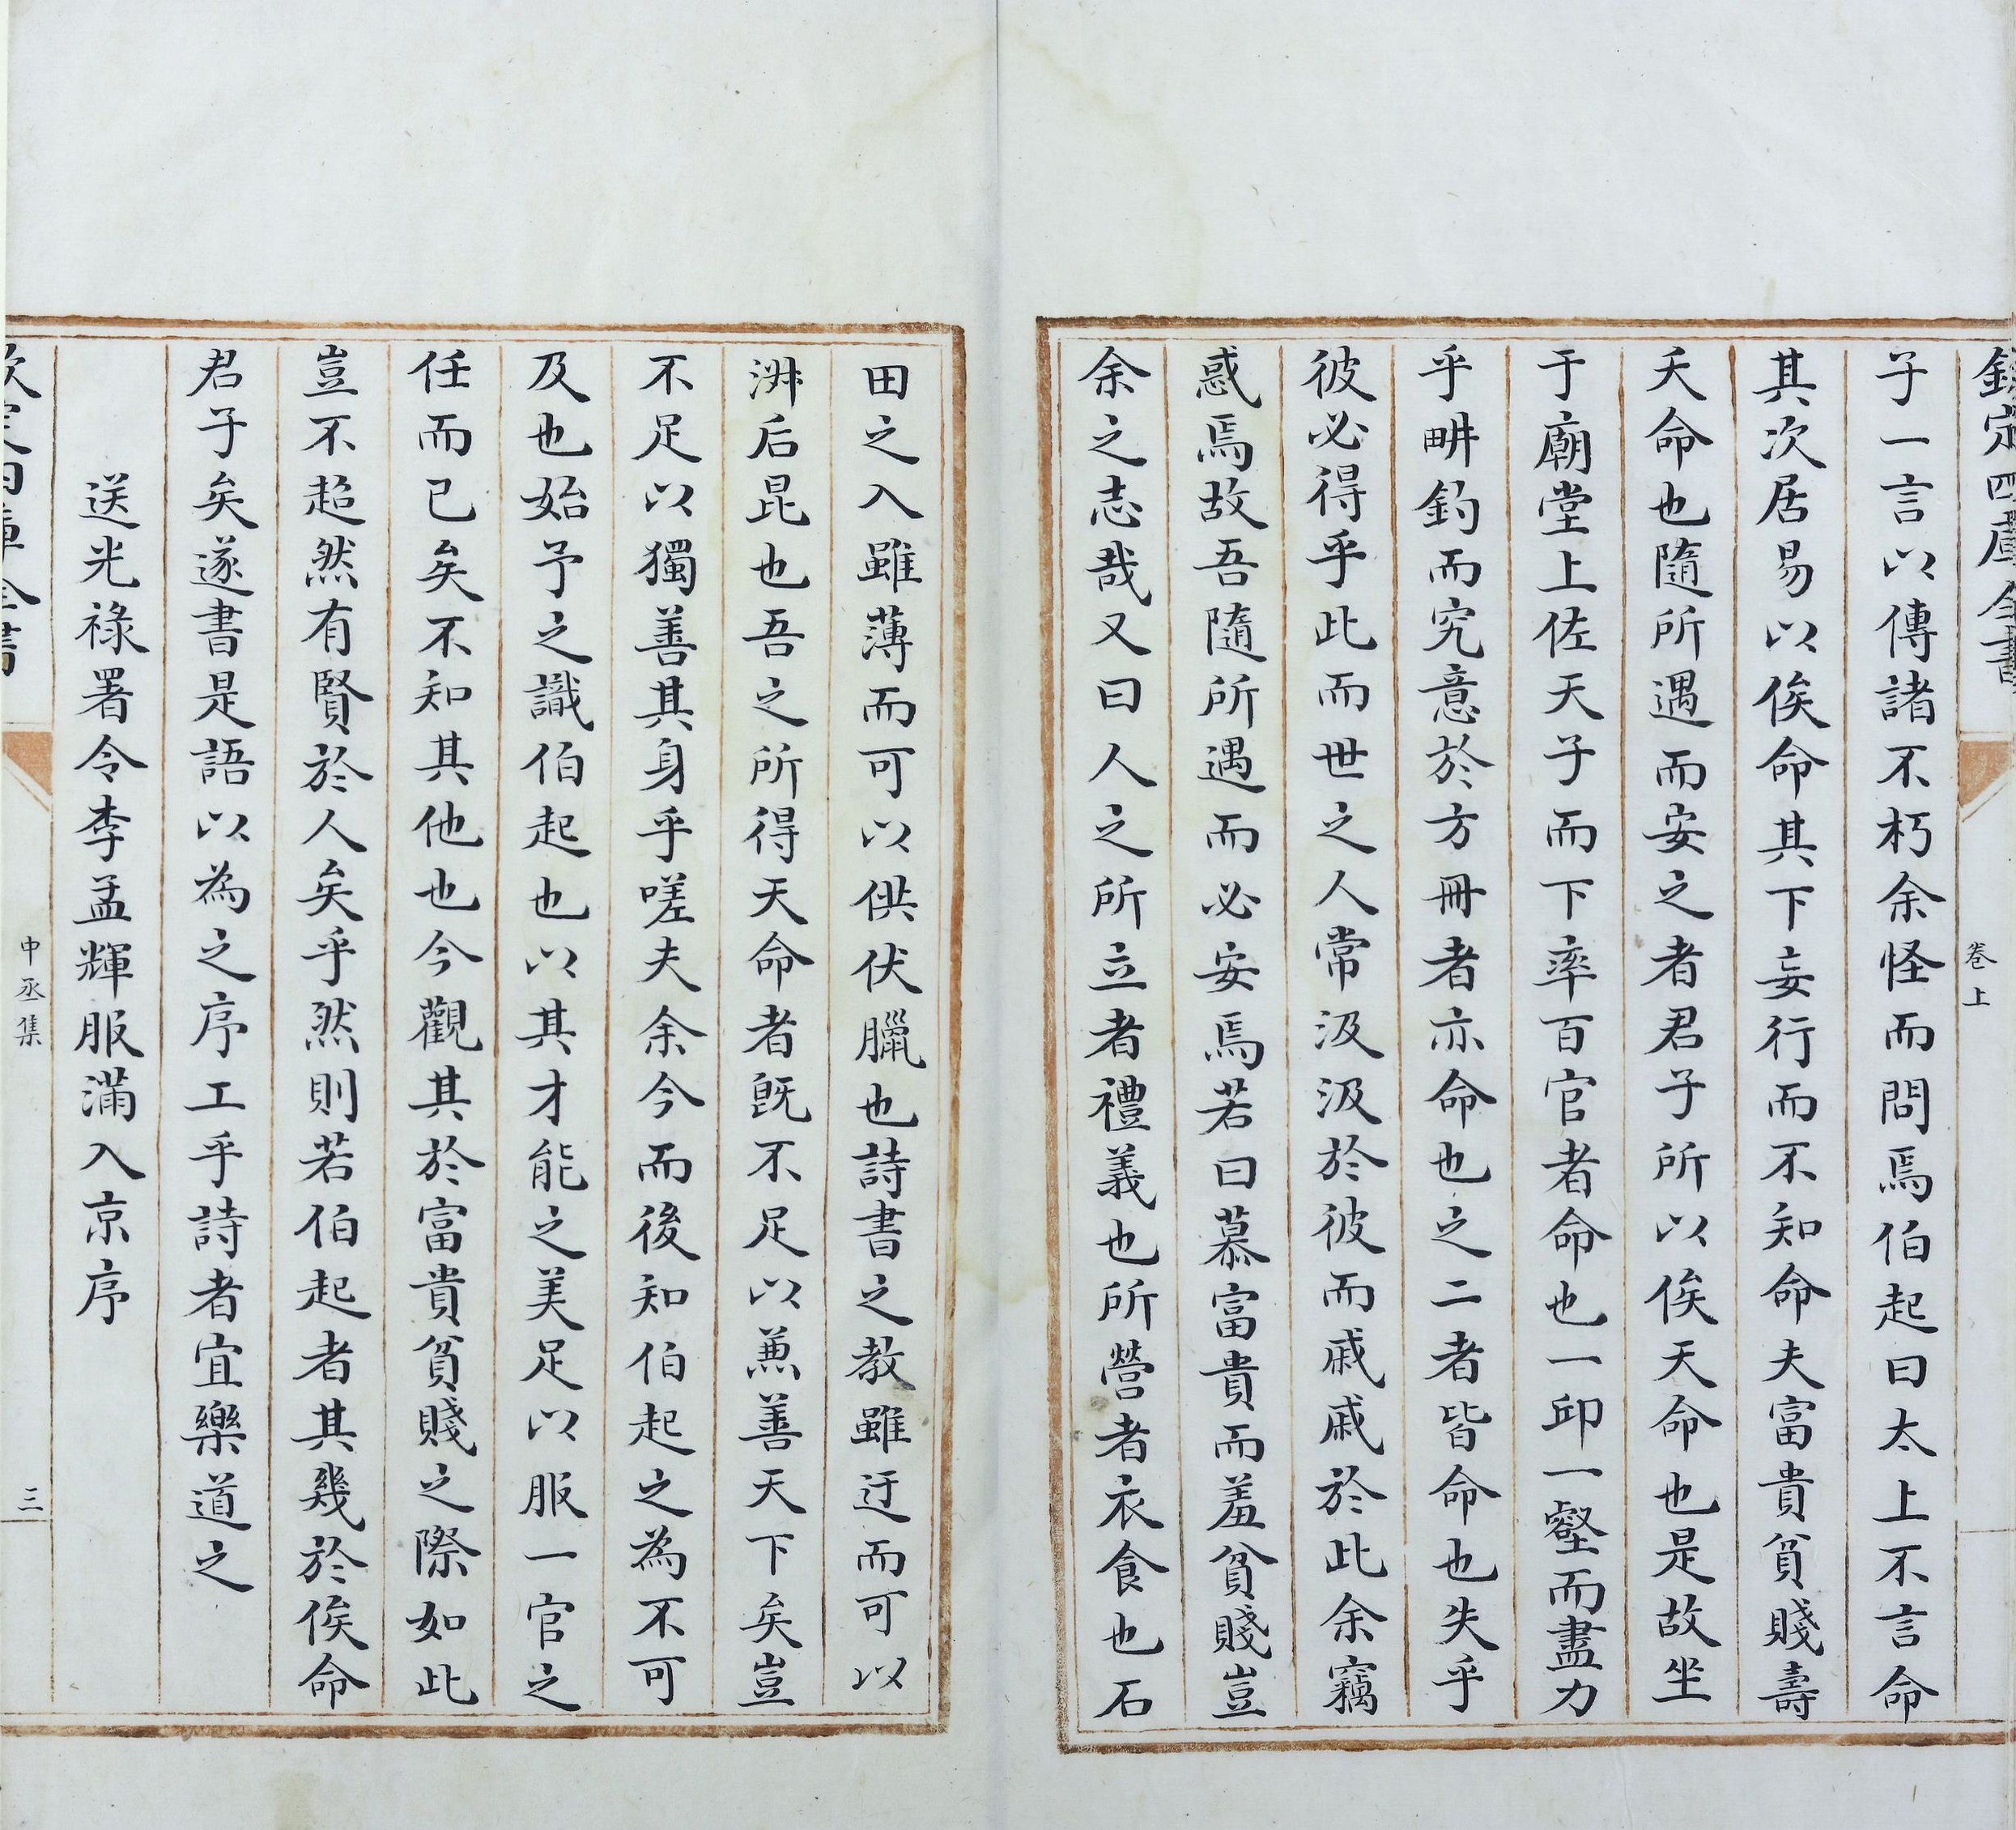 欽定四庫全書
卷上
子一言以傳諸不朽余怪而問焉伯起曰太上不言命
其次居易以俟命其下妄行而不知命夫富貴貧賤壽
夭命也隨所遇而安之者君子所以俟天命也是故坐
于廟堂上佐天子而下率百官者命也一邱一壑而盡力
乎畊釣而究意於方冊者亦命也之二者皆命也失乎
彼必得乎此而世之人常汲汲於彼而戚戚於此余竊
惑焉故吾隨所遇而必安焉若曰慕富貴而羞貧賤豈
余之志哉又曰人之所立者禮義也所營者衣食也石
田之入雖薄而可以供伏臘也詩書之教雖迂而可以
淋后昆也吾之所得天命者既不足以兼善天下矣豈
不足以獨善其身乎嗟夫余今而後知伯起之為不可
及也始予之識伯起也以其才能之美足以服一官之
任而已矣不知其他也今觀其於富貴貧賤之際如此
豈不超然有賢於人矣乎然則若伯起者其幾於俟命
君子矣遂書是語以為之序工乎詩者宜樂道之
送光祿署令李孟輝服滿入京序
欽定四庫全書
申丞集
三